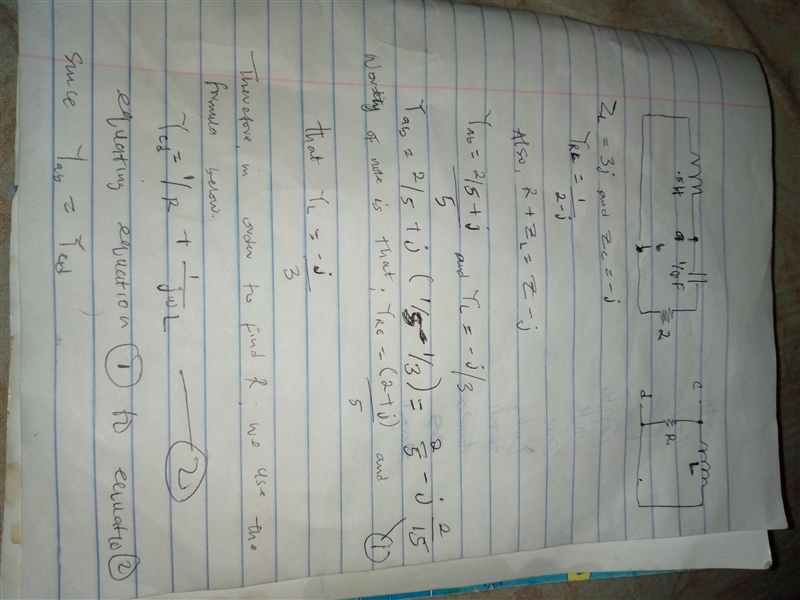 .5H
a
1/10F
b
2
c
d
R
L
Z_L = 3j and Z_C = -j
Y_RC = 1/(2-j)
Also, R + Z_L = Z - j
Y_ab = (2/5 + j)/5 and Y_L = -j/3
Y_ab = 2/5 + j (1/5 - 1/3) = 2/5 - j 2/15 (1)
Worthy of note is that, Y_RC = (2+j)/5 and
that Y_L = -j/3
Therefore, in order to find R, we use the
formula below.
Y_cd = 1/R + 1/jωL — (2)
equating equation (1) to equatio (2)
Since Y_ab = Y_cd,